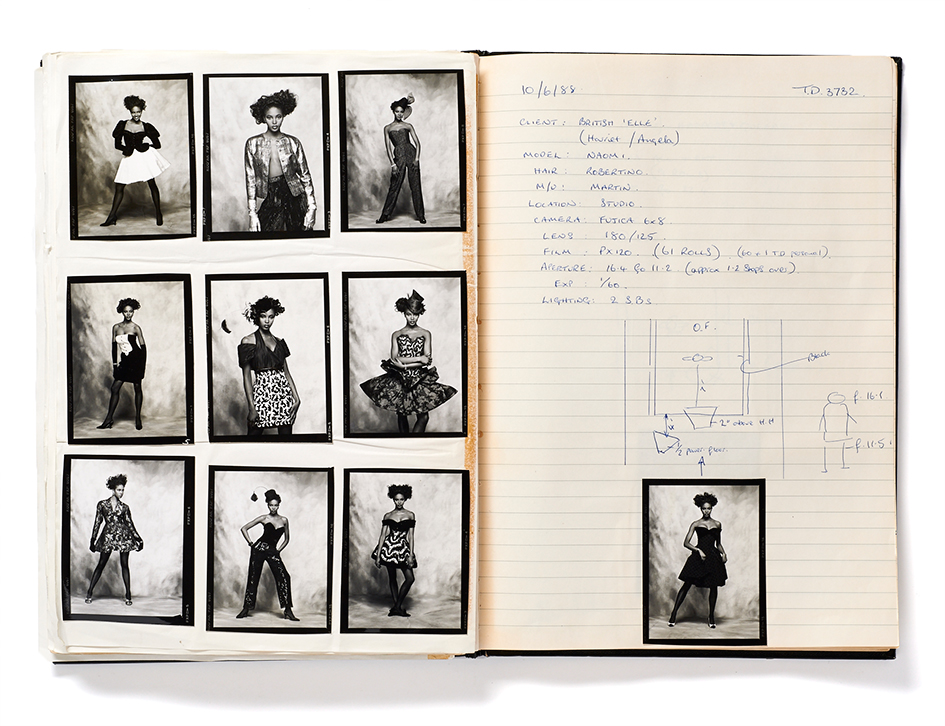 10/6/88
T.D. 3732
CLIENT: BRITISH 'ELLE'.
(Harriet / Angela)
MODEL: NAOMI.
HAIR: ROBERTINO.
M/U: MARTIN.
LOCATION: STUDIO.
CAMERA: FUJICA 6x8.
LENS: 180/125.
FILM: PX120. (61 ROLLS). (60 + 1 T.D.
APERTURE: 16.4 to 11.2 (approx 1.2 stops over).
EXP: 1/60.
LIGHTING: 2 S.B.s
O.F.
Black
2" above H.H
1/2 power
f. 16
f. 11.5